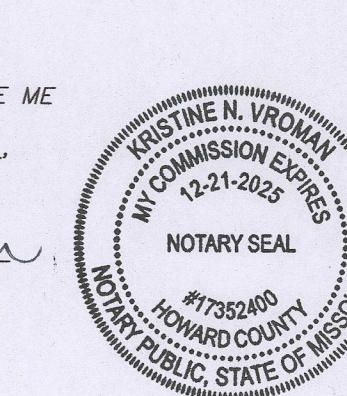 E ME
KRISTINE N. VROMAN
MY COMMISSION EXPIRES
12-21-2025
NOTARY SEAL
#17352400
HOWARD COUNTY
NOTARY PUBLIC, STATE OF MISSO